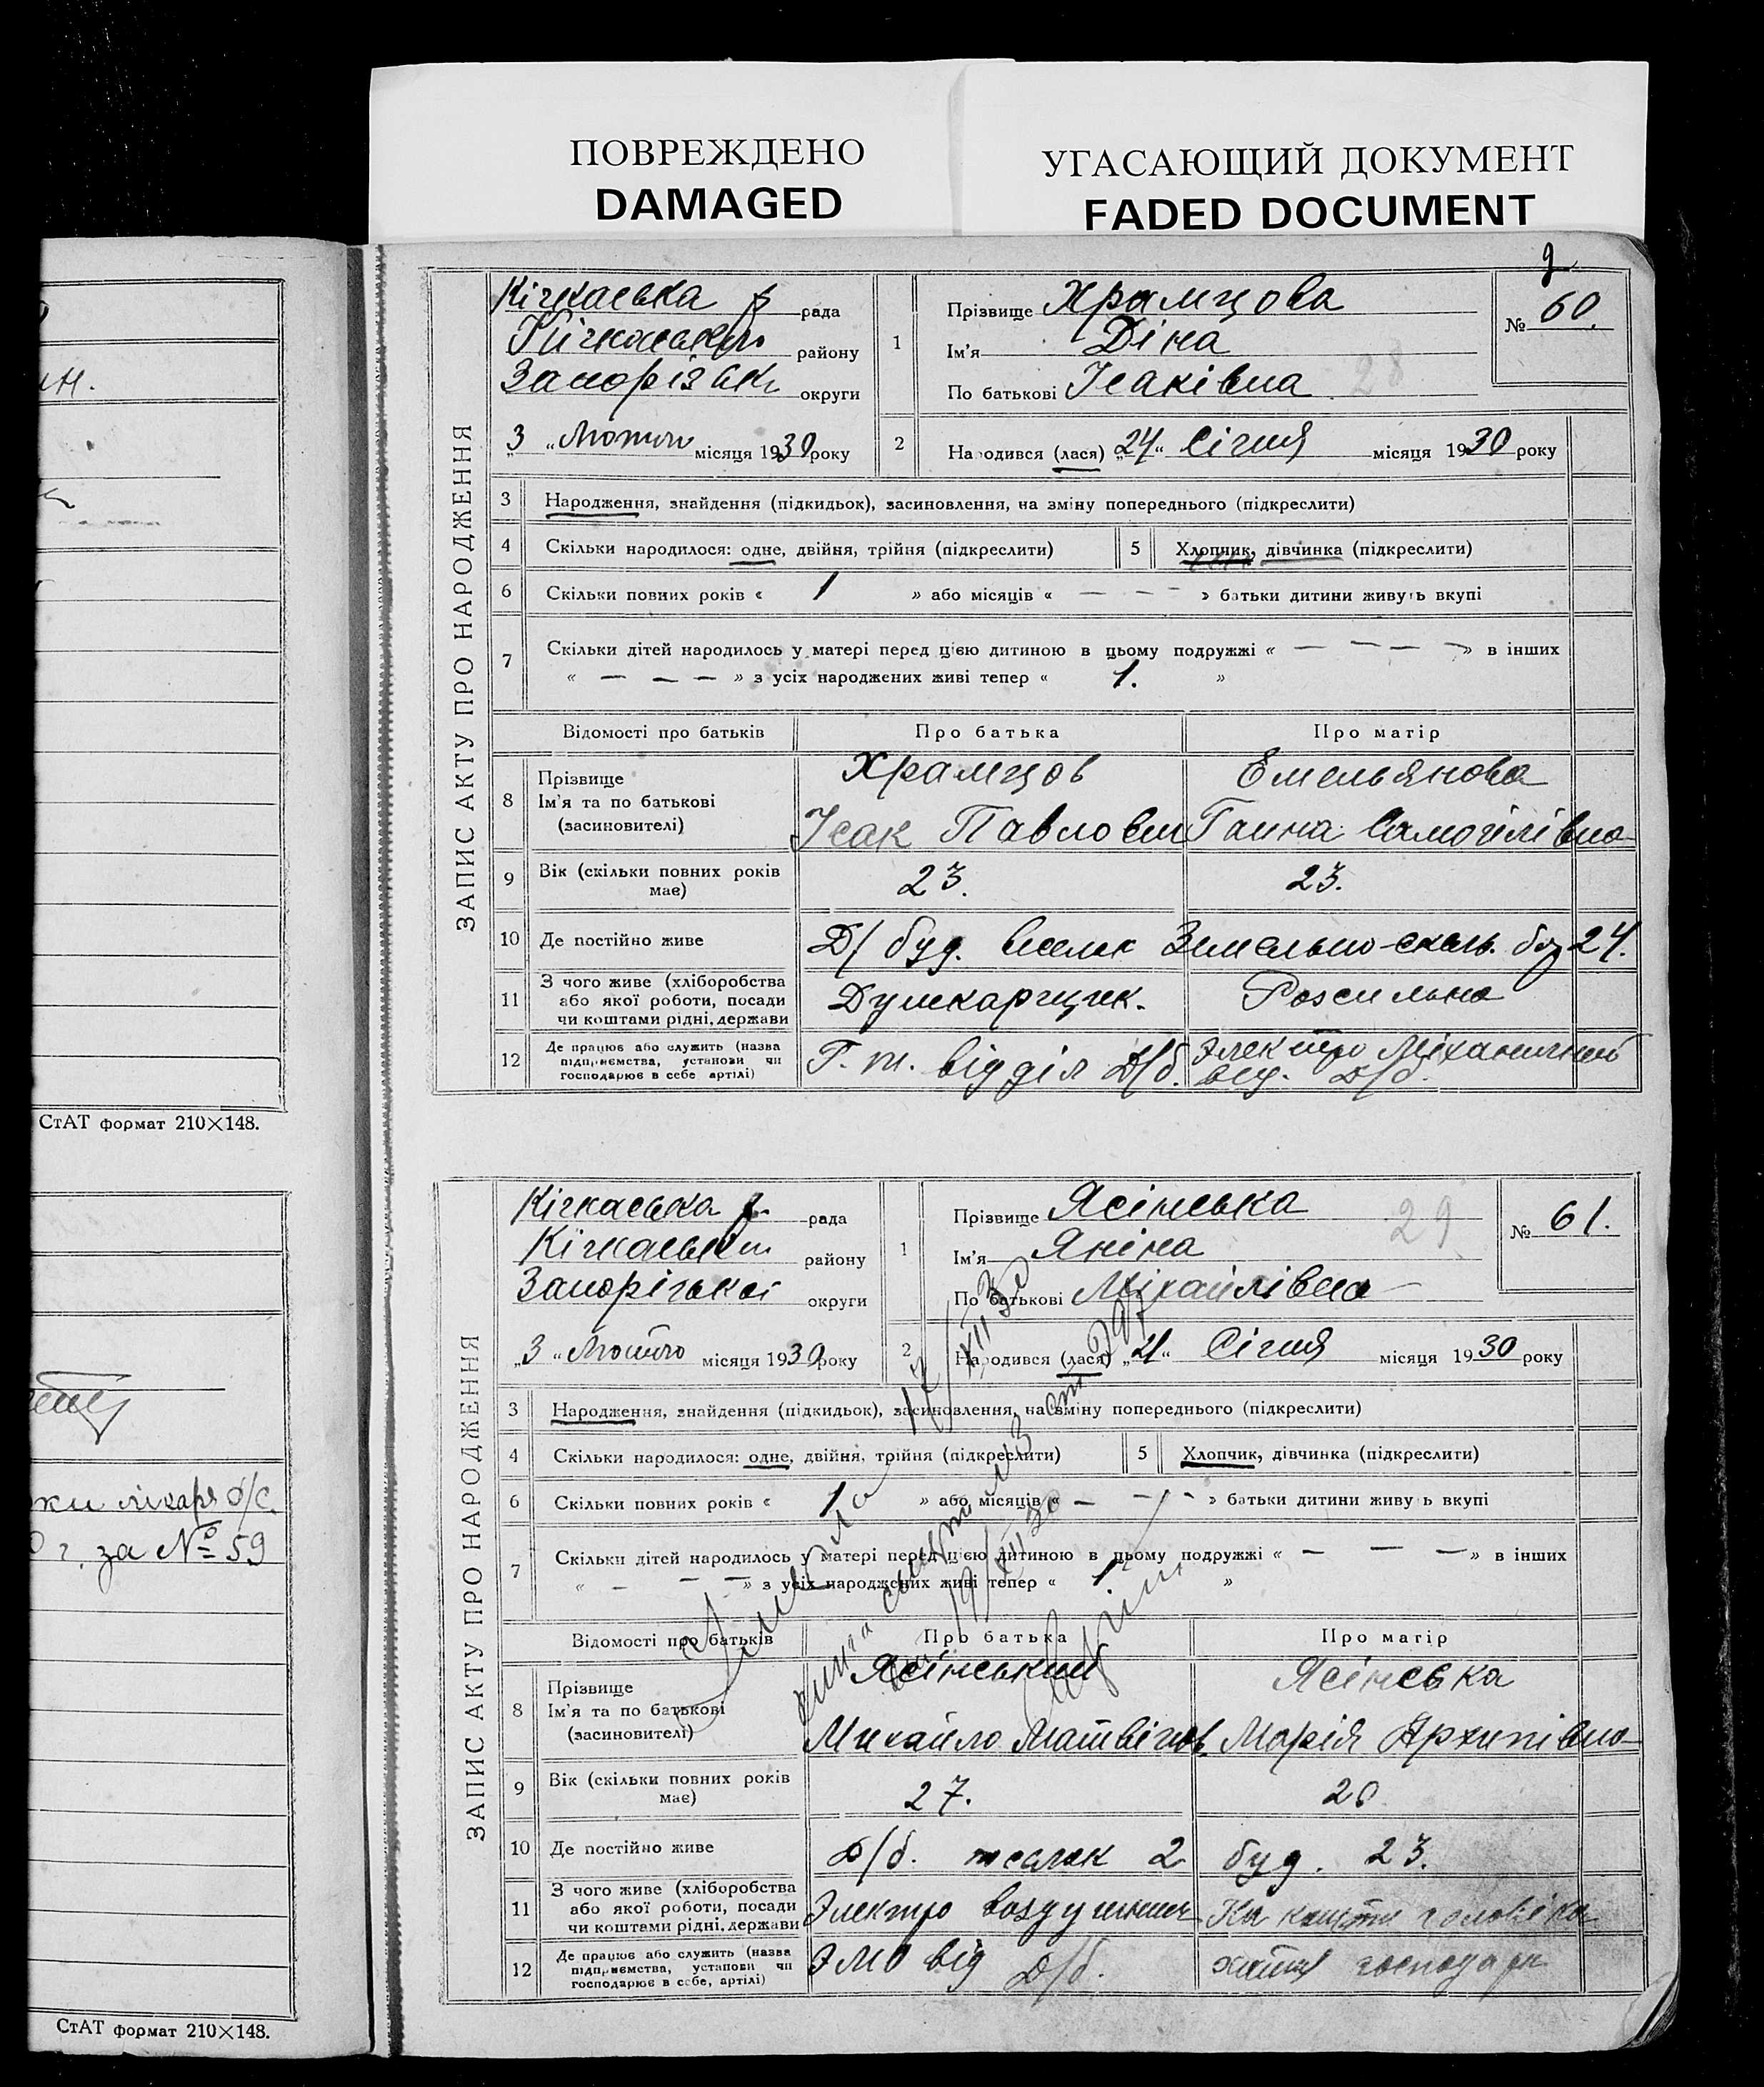 ПОВРЕЖДЕНО
DAMAGED
УГАСАЮЩИЙ ДОКУМЕНТ
FADED DOCUMENT
ки лікаря
г. за № 59
СтАТ формат 210×148.
СтАТ формат 210×148.
ЗАПИС АКТУ ПРО НАРОДЖЕННЯ
Кічкаська рада
району
округи
3 " місяця 1930 року
1
Прізвище Храмцова
Ім'я Діна
По батькові Ісаківна
28
№ 60.
2
Народився (лася) „24" Січня місяця 1930 року
3 Народження, знайдення (підкидьок), засиновлення, на зміну попереднього (підкреслити)
4 Скільки народилося: одне, двійня, трійня (підкреслити) 5 Хлопчик, дівчинка (підкреслити)
6 Скільки повних років « 1 » або місяців « — — — » батьки дитини живуть вкупі
7 Скільки дітей народилось у матері перед цією дитиною в цьому подружжі « — — — — » в інших
« — — — » з усіх народжених живі тепер « 1. »
Відомості про батьків Про батька Про матір
8 Прізвище Храмцов Емельянова
Ім'я та по батькові
(засиновителі) Ісак Павлович Ганна Самоілівна
9 Вік (скільки повних років має) 23. 23.
10 Де постійно живе Д/буд. 24.
11 З чого живе (хліборобства
або якої роботи, посади
чи коштами рідні, держави Розсильна
12 Де працює або служить (назва
підприємства, установи чи
господарює в себе артілі) відділ Д/б. Электро
Д/б.
ЗАПИС АКТУ ПРО НАРОДЖЕННЯ
Кічкаська рада
району
Запорізької округи
„3" місяця 1930 року
1
Прізвище Ясінська
Ім'я Яніна
По батькові Міхайлівна
29
№ 61.
2
Народився (лася) „21" Січня місяця 1930 року
3 Народження, знайдення (підкидьок), засиновлення, на зміну попереднього (підкреслити)
4 Скільки народилося: одне, двійня, трійня (підкреслити) 5 Хлопчик, дівчинка (підкреслити)
6 Скільки повних років « 1 » або місяців « — — — » батьки дитини живуть вкупі
7 Скільки дітей народилось у матері перед цією дитиною в цьому подружжі « — — — » в інших
« — — — » з усіх народжених живі тепер « 1 »
Відомості про батьків Про батька Про матір
8 Прізвище Ясінський Ясінська
Ім'я та по батькові
(засиновителі) Михайло Марія Архипівна
9 Вік (скільки повних років має) 27. 20
10 Де постійно живе Д/б. 2 буд. 23.
11 З чого живе (хліборобства
або якої роботи, посади
чи коштами рідні, держави Электро
12 Де працює або служить (назва
підприємства, установи чи
господарює в себе, артілі) ЭМО від Д/б.